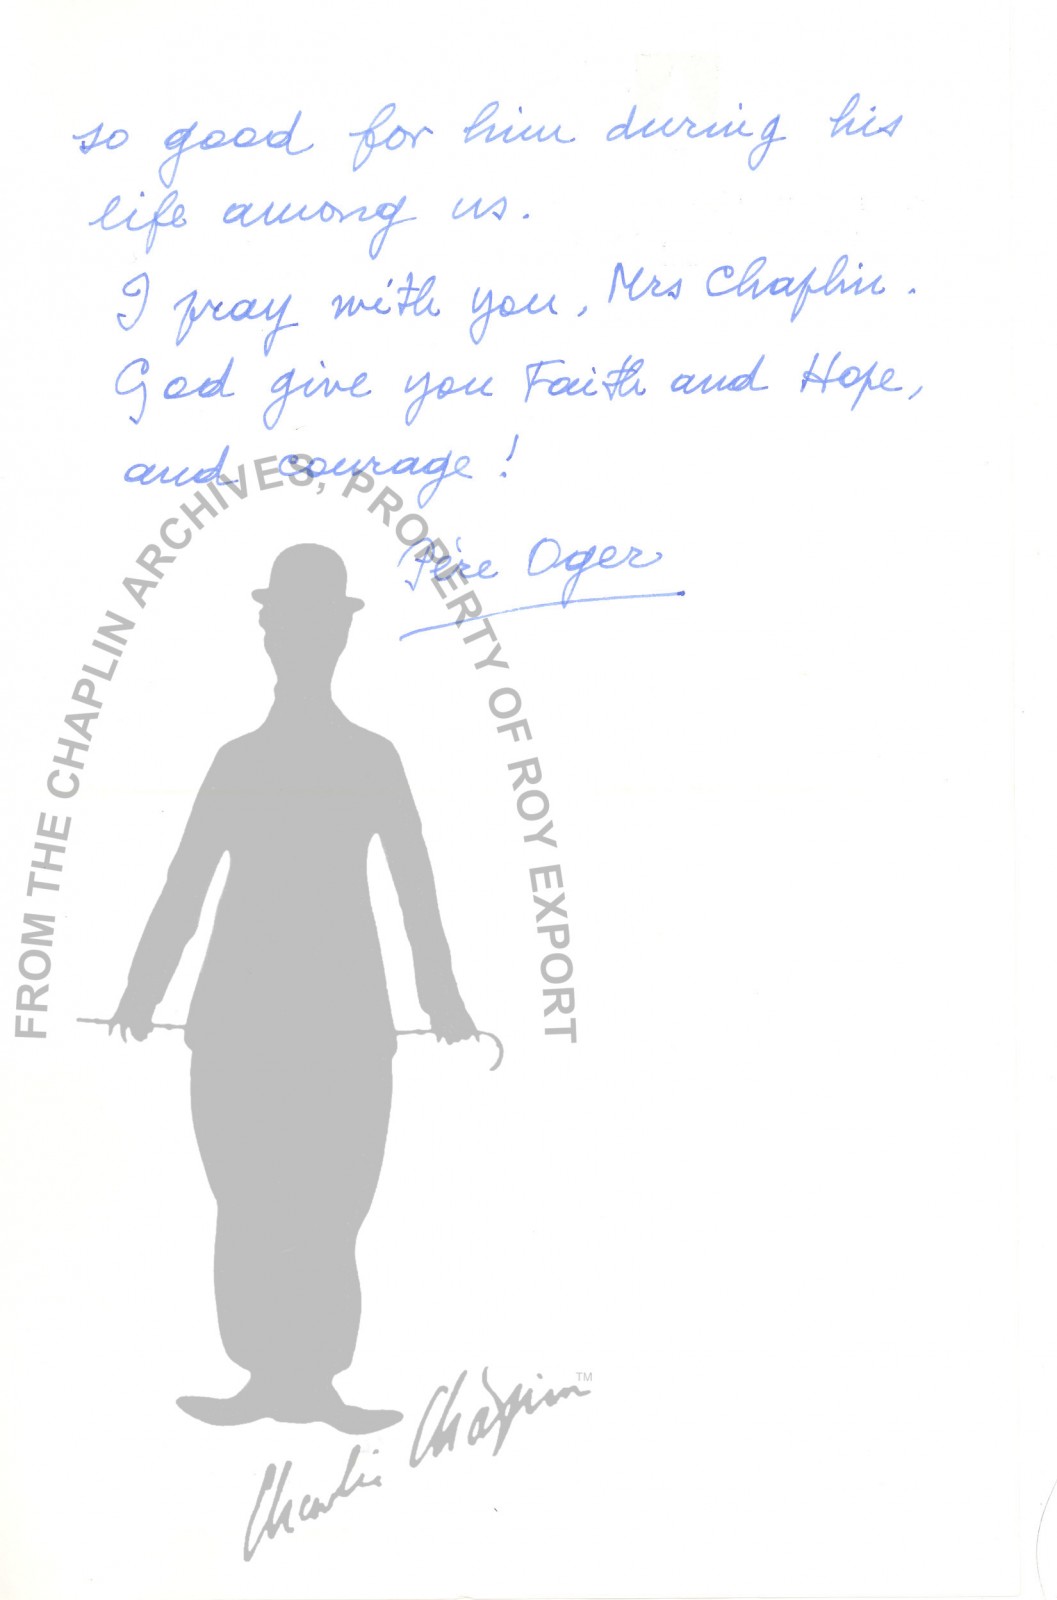 so good for him during his
life among us.
I pray with you, Mrs Chaplin.
God give you Faith and Hope,
and courage !
Père Oger
FROM THE CHAPLIN ARCHIVES, PROPERTY OF ROY EXPORT
Charlie Chaplin TM